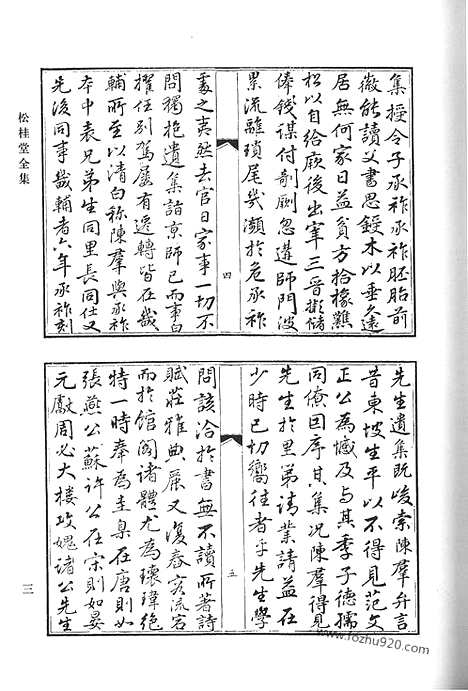 松桂堂全集
集授令子承祚承祚胚胎前
微能讀父書思鋟木以垂久遠
居無何家日益貧方拾橡難
松以自給厥後出宰三晉擬儲
俸錢謀付剞劂忽遘師門波
累流離瑣尾幾瀕於危承祚
四
處之夷然去官日家事一切不
問獨抱遺集詣京師已而事白
擢任別駕屢有遷轉皆在畿
輔所至以清白稱陳羣與承祚
本中表兄弟生同里長同仕又
先後同事畿輔者六年承祚刻
先生遺集既竣索陳羣弁言
昔東坡生平以不得見范文
正公為憾及與其季子德孺
同僚因序其集況陳羣得見
先生於里第請業請益在
少時已切嚮往者乎先生學
五
問該洽於書無不讀所著詩
賦莊雅典麗又復春容流宕
而於館閣諸體尤為瓌瑋絕
特一時奉為圭臬在唐則如
張燕公蘇許公在宋則如晏
元獻周必大樓攻媿諸公先生
三
www.fozhu920.com